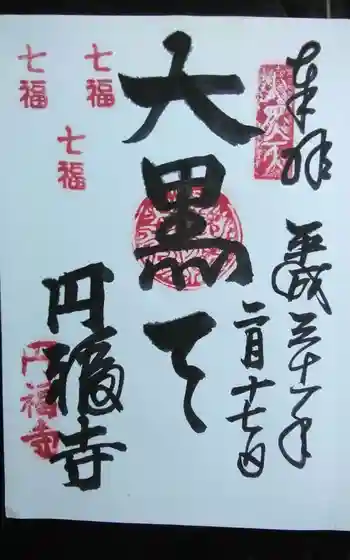 奉拝
平成三十一年
二月十七日
大黒天
円福寺
七福
七福
七福
円福寺